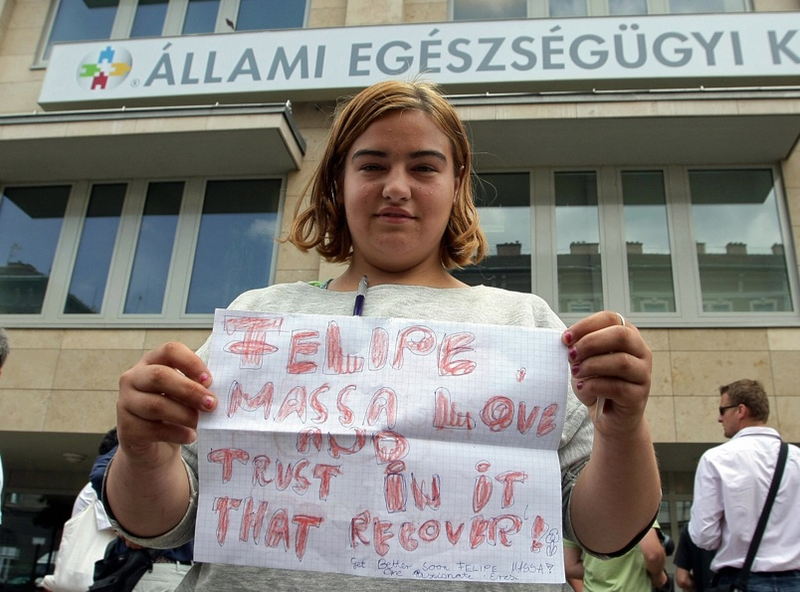 ® ÁLLAMI EGÉSZSÉGÜGYI K
FELIPE.
MASSA Les LOVE
AND
TRUST IN IT
THAT RECOVER!
Get Better Soon FELIPE MASSA!